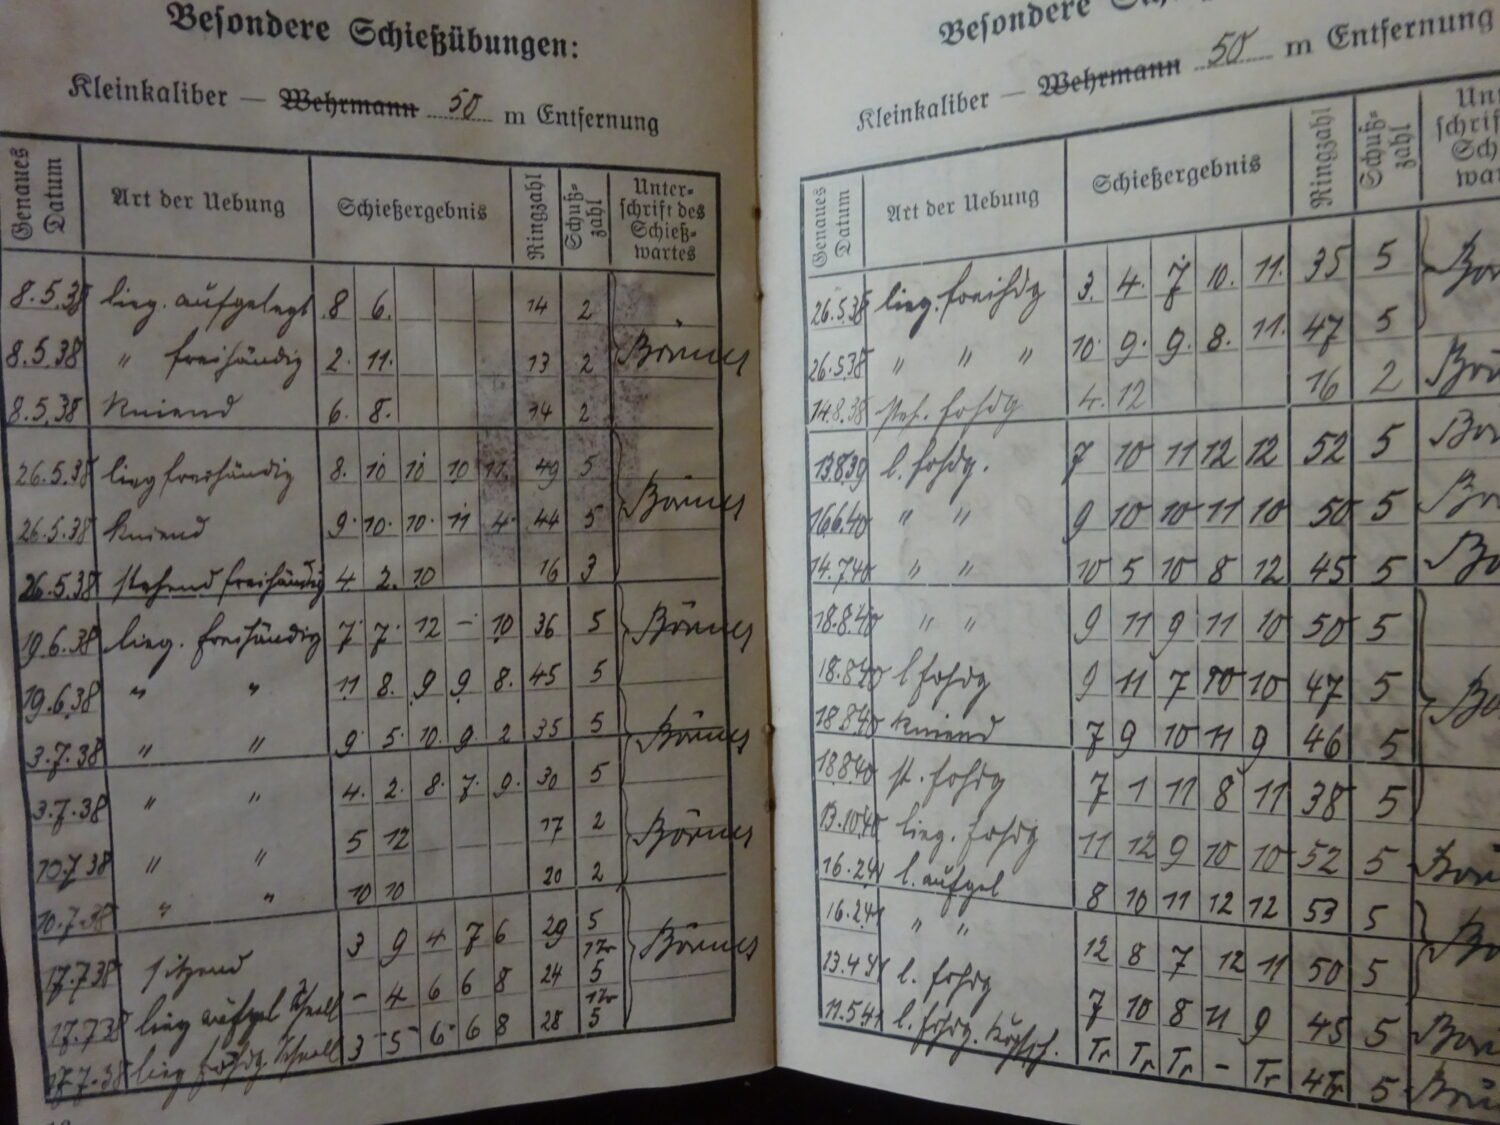 Besondere Schießübungen:
Kleinkaliber — Wehrmann 50 m Entfernung
Genaues Datum Art der Uebung Schießergebnis Ringzahl Schuß-zahl Unter-schrift des Schieß-wartes
8.5.38 lieg. aufgelegt 8 6. 14 2
8.5.38 " freihändig 2. 11. 13 2 Börnes
8.5.38 Kniend 6. 8. 14 2
26.5.38 lieg freihändig 8. 10 10 10 11. 49 5
26.5.38 Kniend 9. 10. 10. 11 4. 44 5 Börnes
26.5.38 stehend freihändig 4 2. 10 16 3
19.6.38 lieg. freihändig 7. 7. 12 – 10 36 5 Börnes
19.6.38 " " 11 8. 9 9 8. 45 5
3.7.38 " " 9. 5. 10. 9 2 35 5 Börnes
3.7.38 " " 4. 2. 8. 7. 9. 30 5
10.7.38 " " 5 12 17 2 Börnes
10.7.38 " " 10 10 20 2
17.7.38 sitzend 3 9 4 7 6 29 5 Börnes
17.7.38 lieg aufgel Schnell – 4 6 6 8 24 5
17.7.38 lieg frhdg. Schnell 3 5 6 6 8 28 5
Besondere
Kleinkaliber — Wehrmann 50 m Entfernung
Genaues Datum Art der Uebung Schießergebnis Ringzahl Schuß-zahl
26.5.38 lieg. freihdg 3. 4. 7 10. 11. 35 5
26.5.38 " " " 10. 9. 9. 8. 11. 47 5
14.8.38 steh. frhdg 4. 12 16 2
13.8.39 l. frhdg. 7 10 11 12 12 52 5
16.6.40 " " 9 10 10 11 10 50 5
14.7.40 " " 10 5 10 8 12 45 5
18.8.40 " " 9 11 9 11 10 50 5
18.8.40 l frhdg 9 11 7 10 10 47 5
18.8.40 Kniend 7 9 10 11 9 46 5
18.8.40 st. frhdg 7 1 11 8 11 38 5
13.10.40 lieg. frhdg 11 12 9 10 10 52 5
16.2.41 l. aufgel 8 10 11 12 12 53 5
16.2.41 " " 12 8 7 12 11 50 5
13.4.41 l. frhdg 7 10 8 11 9 45 5
11.5.41 l. frhdg. Tr Tr Tr – Tr 4 Tr 5